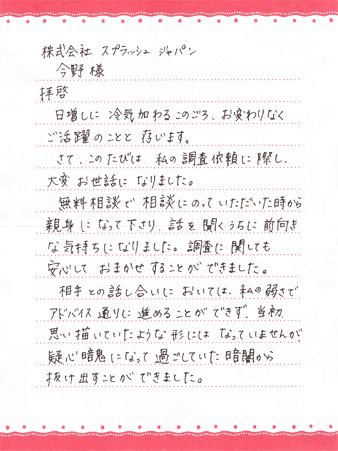 株式会社 スプラッシュ ジャパン
今野 様
拝啓
日増しに 冷気加わるこのごろ、お変わりなく
ご活躍のことと 存じます。
さて、このたびは 私の調査依頼に際し、
大変 お世話に なりました。
無料相談で 相談にのっていただいた時から
親身に なって 下さり、話を聞くうちに前向き
な気持ちになりました。調査に関しても
安心して おまかせすることができました。
相手との話し合いに おいては、私の弱さで
アドバイス通りに 進めることができず、当初
思い描いていたような形には なっていませんが、
疑心暗鬼になって 過ごしていた暗闇から
抜け出すことができました。